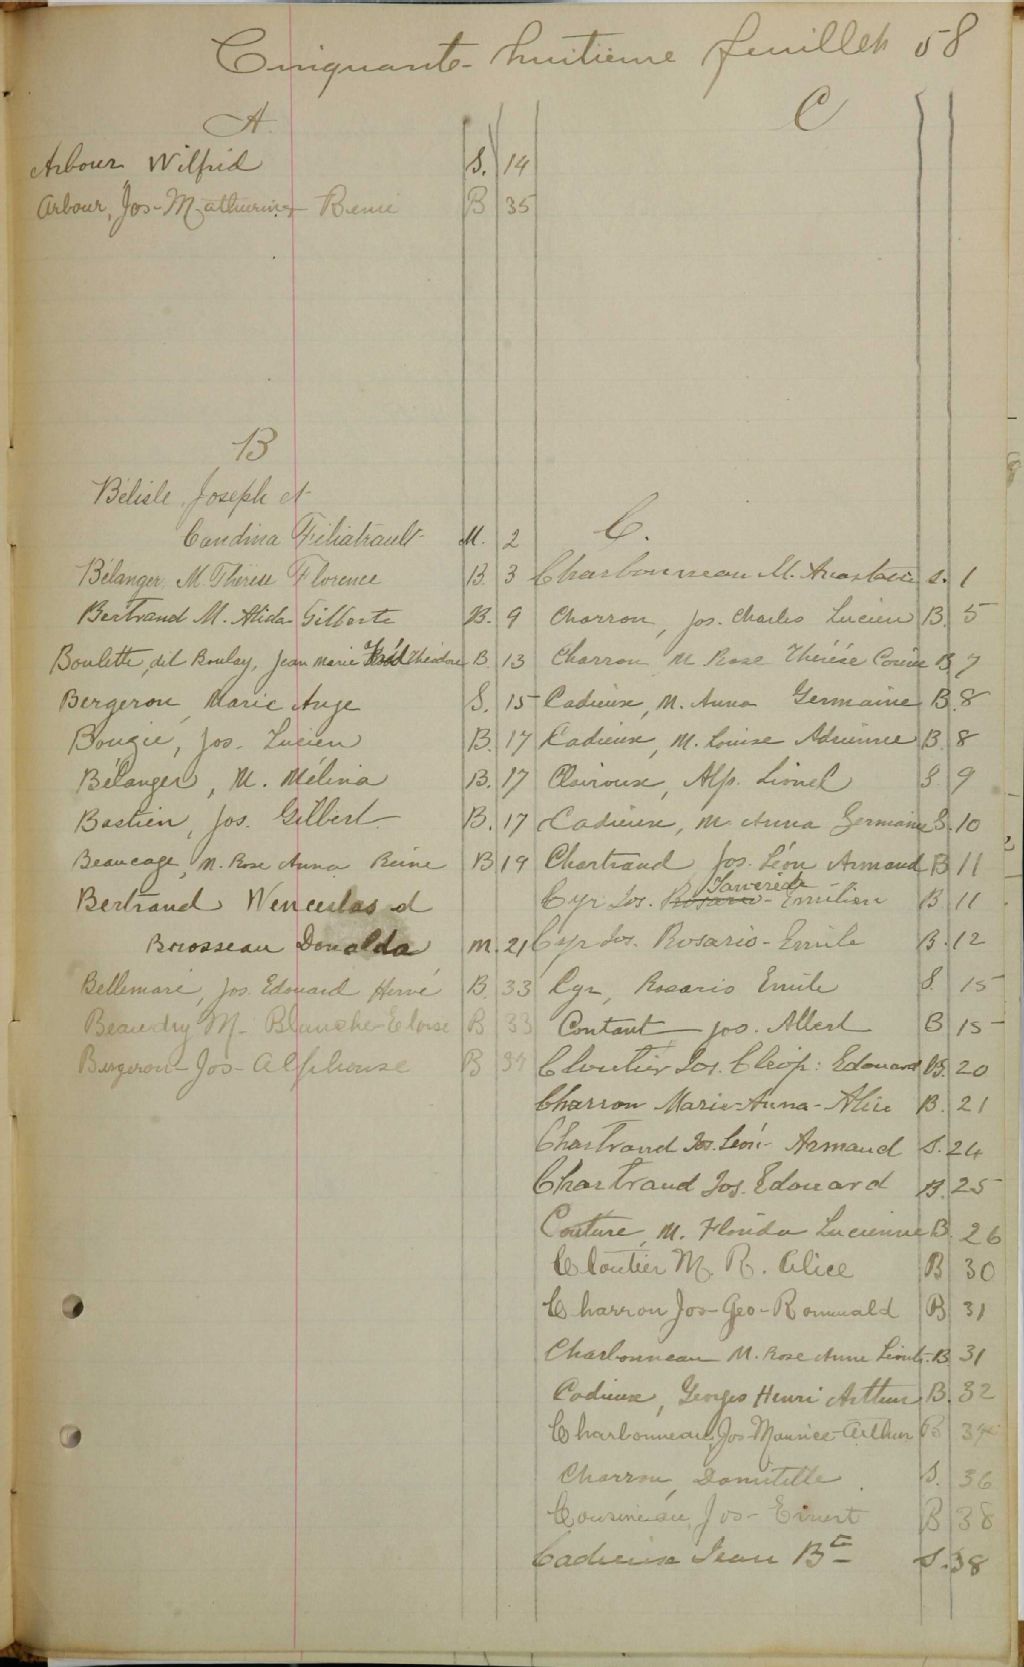 Cinquante-huitième feuillet 58
A
Arbour Wilfrid S. 14
Arbour, Jos-Mathurin- Remi B 35
B
Bélisle Joseph et
Candina Filiatrault M. 2
Bélanger M Thérèse Florence B. 3
Bertrand M. Alida Gilberte B. 9
Boulette, dit Boulay, Jean Marie Théodore B. 13
Bergeron Marie Ange S. 15
Bougie, Jos. Lucien B. 17
Bélanger, M. Mélina B. 17
Bastien, Jos. Gilbert B. 17
Beaucage, M. Rose Anna Reine B 19
Bertrand Wenceslas et
Brosseau Donalda m. 21
Bellemare, Jos. Edouard Hervé B. 33
Beaudry M- Blanche-Eloise B 33
Bergeron-Jos-Alphonse B
C
C.
Charbonneau M. Anastasie S. 1
Charron, Jos. Charles Lucien B. 5
Charron M Rose Thérèse B 7
Cadieux, M. Anna Germaine B. 8
Cadieux, M. Louise Adrienne B. 8
Clairoux, Alp. Lionel S 9
Cadieux, M. Anna Germaine S. 10
Chartrand Jos. Léon Armand B 11
Cyr Jos. Rosario- Emilien B 11
Cyr Jos. Rosario-Emile B. 12
Cyr, Rosario Emile S. 15
Contant Jos. Albert B 15
Cloutier Jos. Cléop: Edouard B. 20
Charron Marie-Anna-Alice B. 21
Chartrand Jos. Léon- Armand S. 24
Chartrand Jos. Edouard B. 25
Couture, M. Florida Lucienne B. 26
Cloutier M. R. Alice B 30
Charron Jos-Geo-Romuald B 31
Charbonneau M. Rose Anne B 31
Cadieux, Georges Henri Arthur B. 32
Charbonneau, Jos-Maurice-Arthur B
Charron, Domitille S. 36
Cousineau, Jos- Ernest B 38
Cadieux Jean Bte S. 38